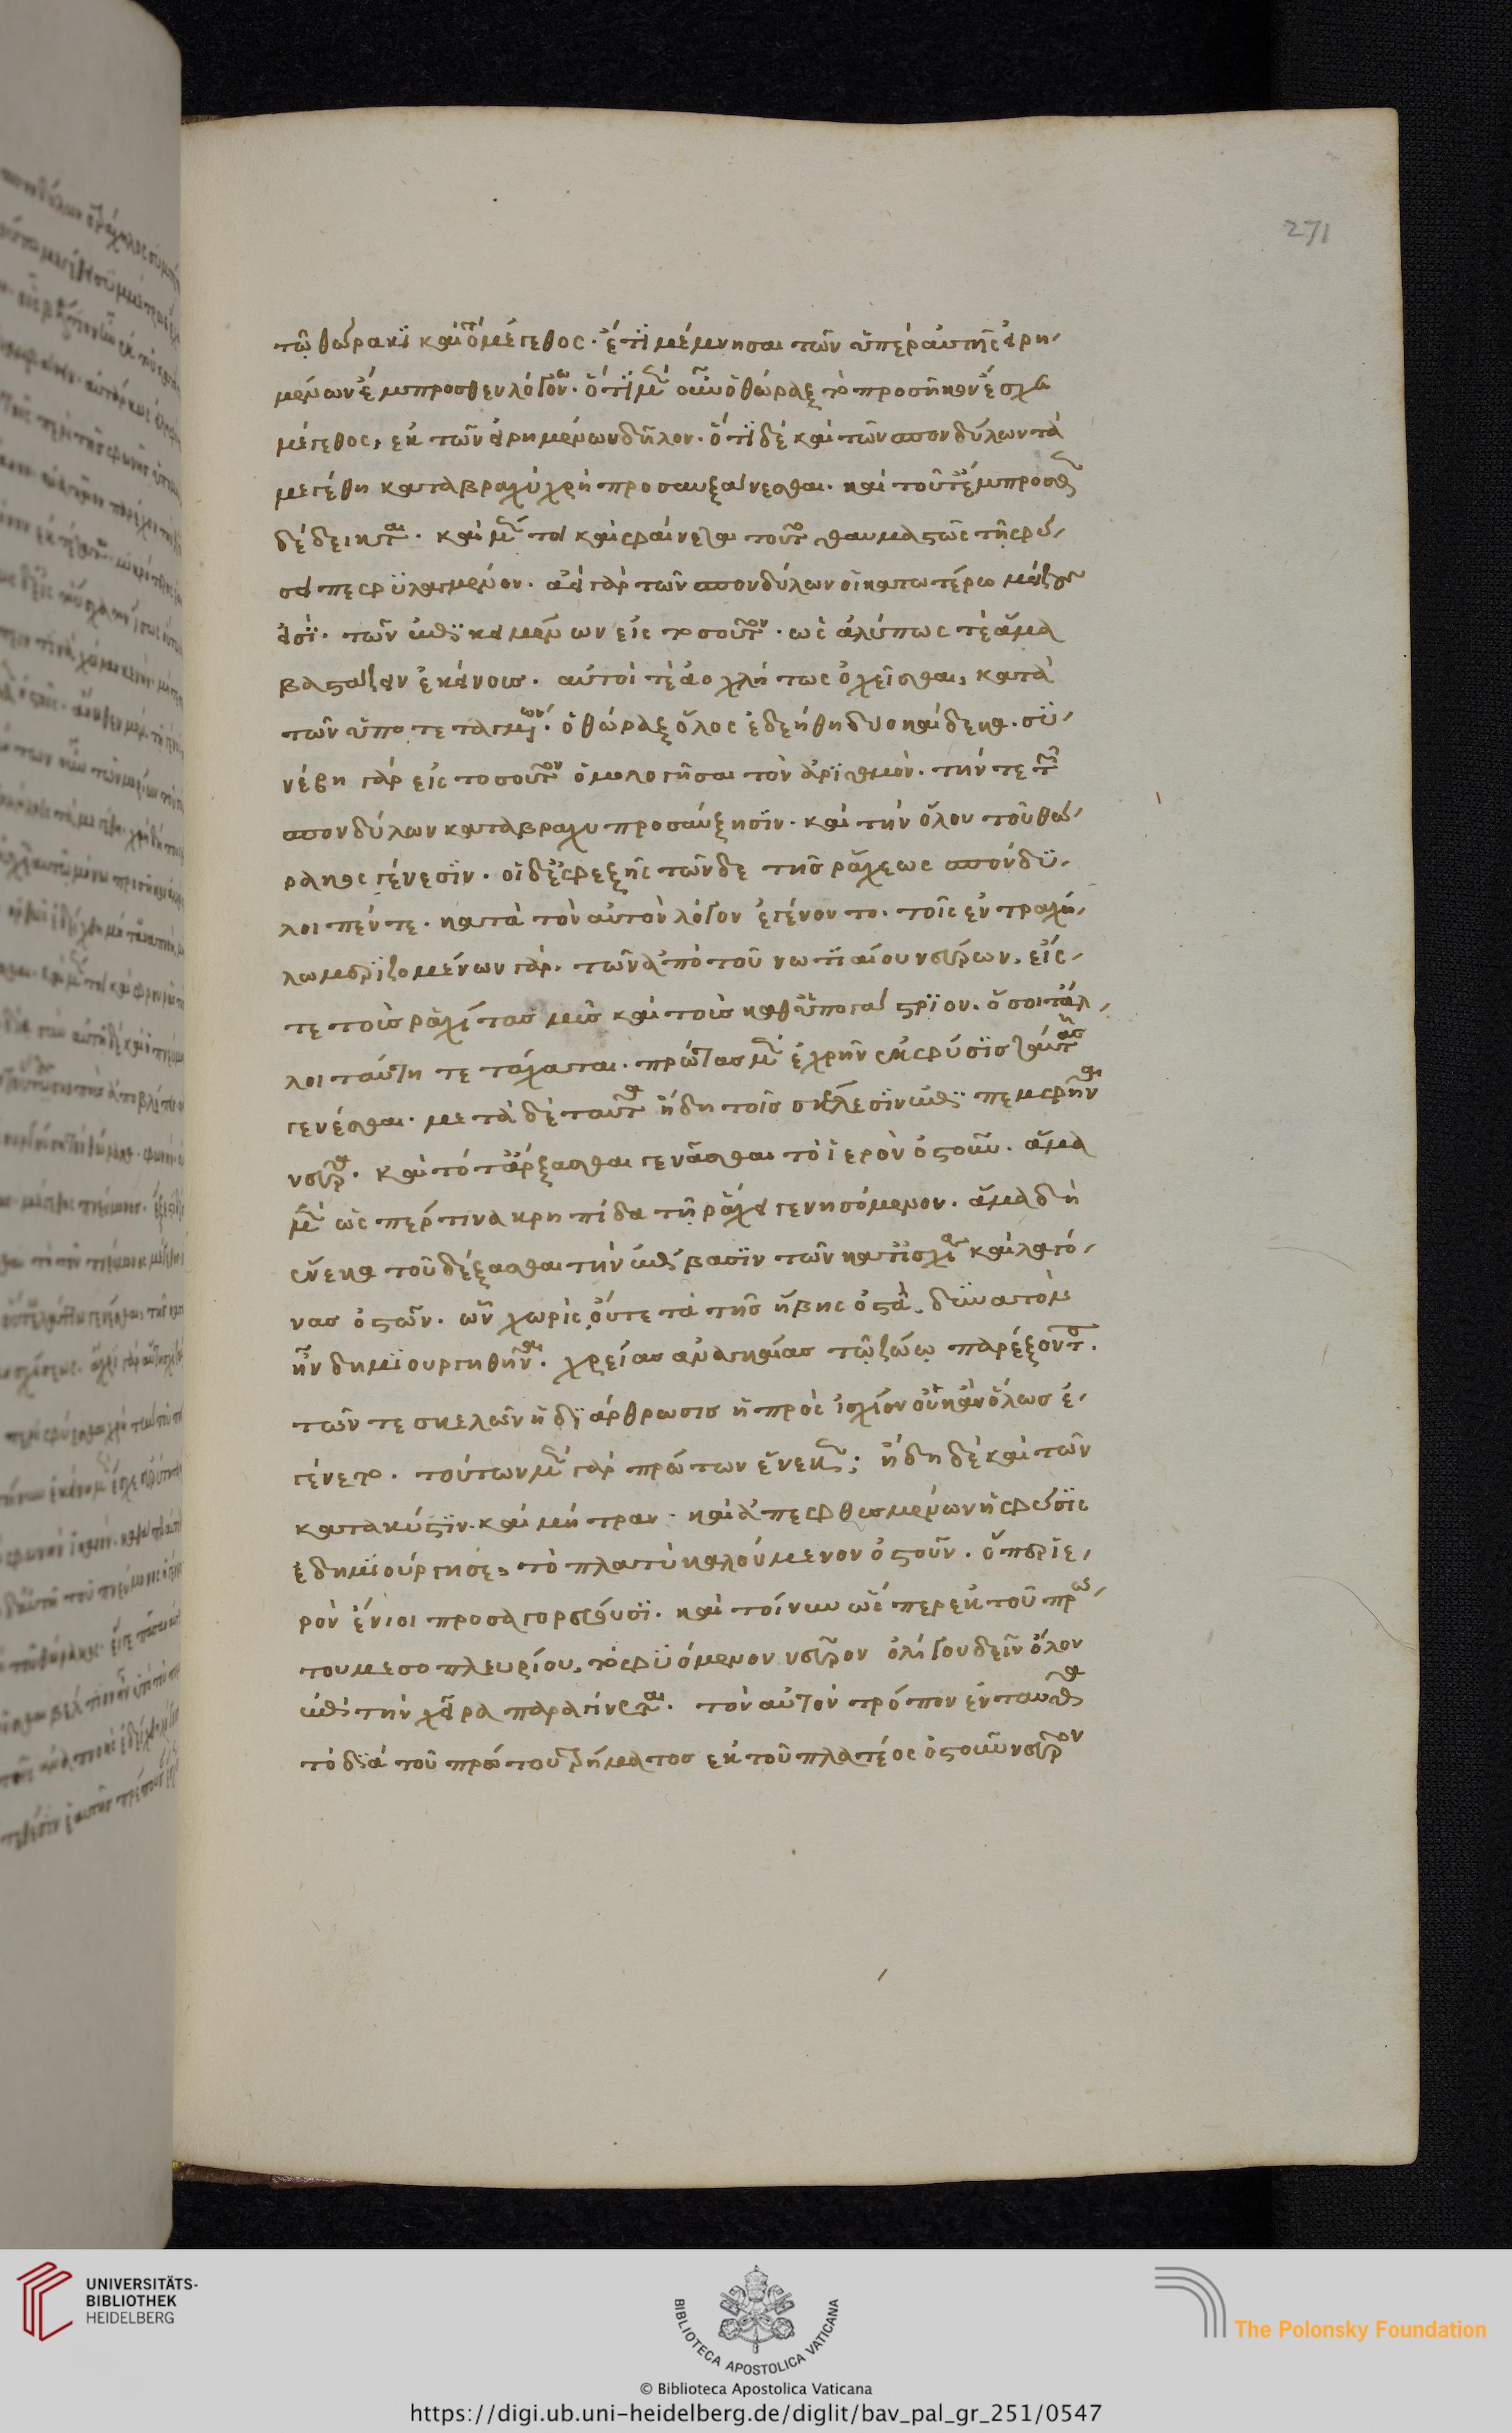 271
τῷ θώρακϊ καὶ τὸ μέγεθος· ἔτϊ μέμνησαι τῶν ὑπὲρ αὐτῆς εἰρη-
μένων ἔμπροσθεν λόγων· ὅτϊ μὲν οὖν ὁ θώραξ τὸ προσῆκον ἔσχε
μέγεθος, ἐκ τῶν εἰρημένων δῆλον· ὅτϊ δὲ καὶ τῶν σπονδύλων τὰ
μεγέθη κατὰ βραχὺ χρὴ προσαυξάνεσθαι· καὶ τοῦτ' ἔμπροσθεν
δέδεικται· καὶ μέντοι καὶ φαίνεται τοῦτο θαυμαστῶς τῇ φύ-
σει πεφϋλαγμένον· ἀεὶ γὰρ τῶν σπονδύλων οἱ κατωτέρω μείζους
εἰσϊ· τῶν ἐπϊκειμένων εἰς τοσοῦτον· ὡς ἀλύπως τὲ ἅμα
βαστάζειν ἐκείνους· αὐτοί τὲ ἀοχλήτως ὀχεῖσθαι, κατὰ
τῶν ὑποτεταγμένων· ὁ θώραξ ὅλος ἐδεήθη δυοκαίδεκα· σϋ-
νέβη γὰρ εἰς τοσοῦτον ὁμολογῆσαι τὸν ἀρϊθμὸν· τήν τε τῶν
σπονδύλων κατὰ βραχυ προσαύξησϊν· καὶ τὴν ὅλου τοῦ θώ-
ρακος γένεσϊν· οἱ δ' ἐφεξῆς τῶνδε τῆς ῥάχεως σπόνδϋ-
λοι πέντε· κατὰ τὸν αὐτὸν λόγον ἐγένοντο· τοῖς ἐν τραχή-
λω μερϊζομένων γὰρ· τῶν ἀπὸ τοῦ νωτϊαίου νεύρων, εἴς
τε τοὺς ῥαχίτας μῦς καὶ τοὺς καθ' ὑπογάστρϊον· ὅσοι τ' ἄλ-
λοι ταύτη τε τάχαται· πρώτας μὲν ἐχρῆν ἐκφύσϊς ταύτας
γενέσθαι· μετὰ δὲ ταῦτα ἤδη τοῖς σκέλεσϊν ἐπϊπεμφθῆναι
νεῦρα· καὶ τότ' ἄρξασθαι γενᾶσθαι τὸ ἱερὸν ὀστοῦν· ἅμα
μὲν ὥς περ τινα κρηπίδα τῇ ῥάχει γενησόμενον· ἅμα δὴ
ἕνεκα τοῦ δέξασθαι τὴν ἐπίβασϊν τῶν κατ' ἰσχία καὶ λαγό-
νας ὀστῶν· ὧν χωρὶς, οὔτε τὰ τῆς ἥβης ὀστᾶ, δυνατὸν
ἦν δημϊουργηθῆναι· χρείας ἀναγκαίας τῷ ζώῳ παρέξοντα·
τῶν τε σκελῶν ἡ δϊάρθρωσις ἡ πρὸς ἰσχίον οὐκ ἂν ὅλως ἐ-
γένετο· τούτων μὲν γὰρ πρώτων ἕνεκεν; ἤδη δὲ καὶ τῶν
κατὰ κύστϊν· καὶ μήτραν· καὶ ἀπευθυσμένων ἡ φύσϊς
ἐδημϊούργησε, τὸ πλατὺ καλούμενον ὀστοῦν· ὅπερ ἱε-
ρὸν ἔνιοι προσαγορεύουσϊ· καὶ τοίνυν ὥς περ ἐκ τοῦ πρώ-
του μεσοπλευρίου, τὸ φϋόμενον νεῦρον ὀλίγου δεῖν ὅλον
ἐπὶ τὴν χεῖρα παραγίνεται· τὸν αὐτὸν τρόπον ἐνταῦθα
τὸ δϊὰ τοῦ πρώτου τρήματος ἐκ τοῦ πλατέος ὀστοῦν νεῦρον
UNIVERSITÄTS-
BIBLIOTHEK
HEIDELBERG
BIBLIOTECA APOSTOLICA VATICANA
The Polonsky Foundation
© Biblioteca Apostolica Vaticana
https://digi.ub.uni-heidelberg.de/diglit/bav_pal_gr_251/0547